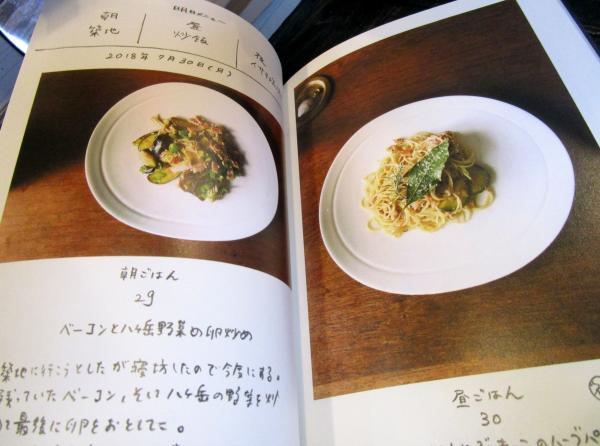 朝
築地
昼
炒飯
2018年7月30日(月)
朝ごはん
29
ベーコンと八ヶ岳野菜の卵炒め
築地に行こうとしたが寝坊したので今度にする。
残っていたベーコン、そして八ヶ岳の野菜を炒
て最後に卵をおとして。
昼ごはん
30